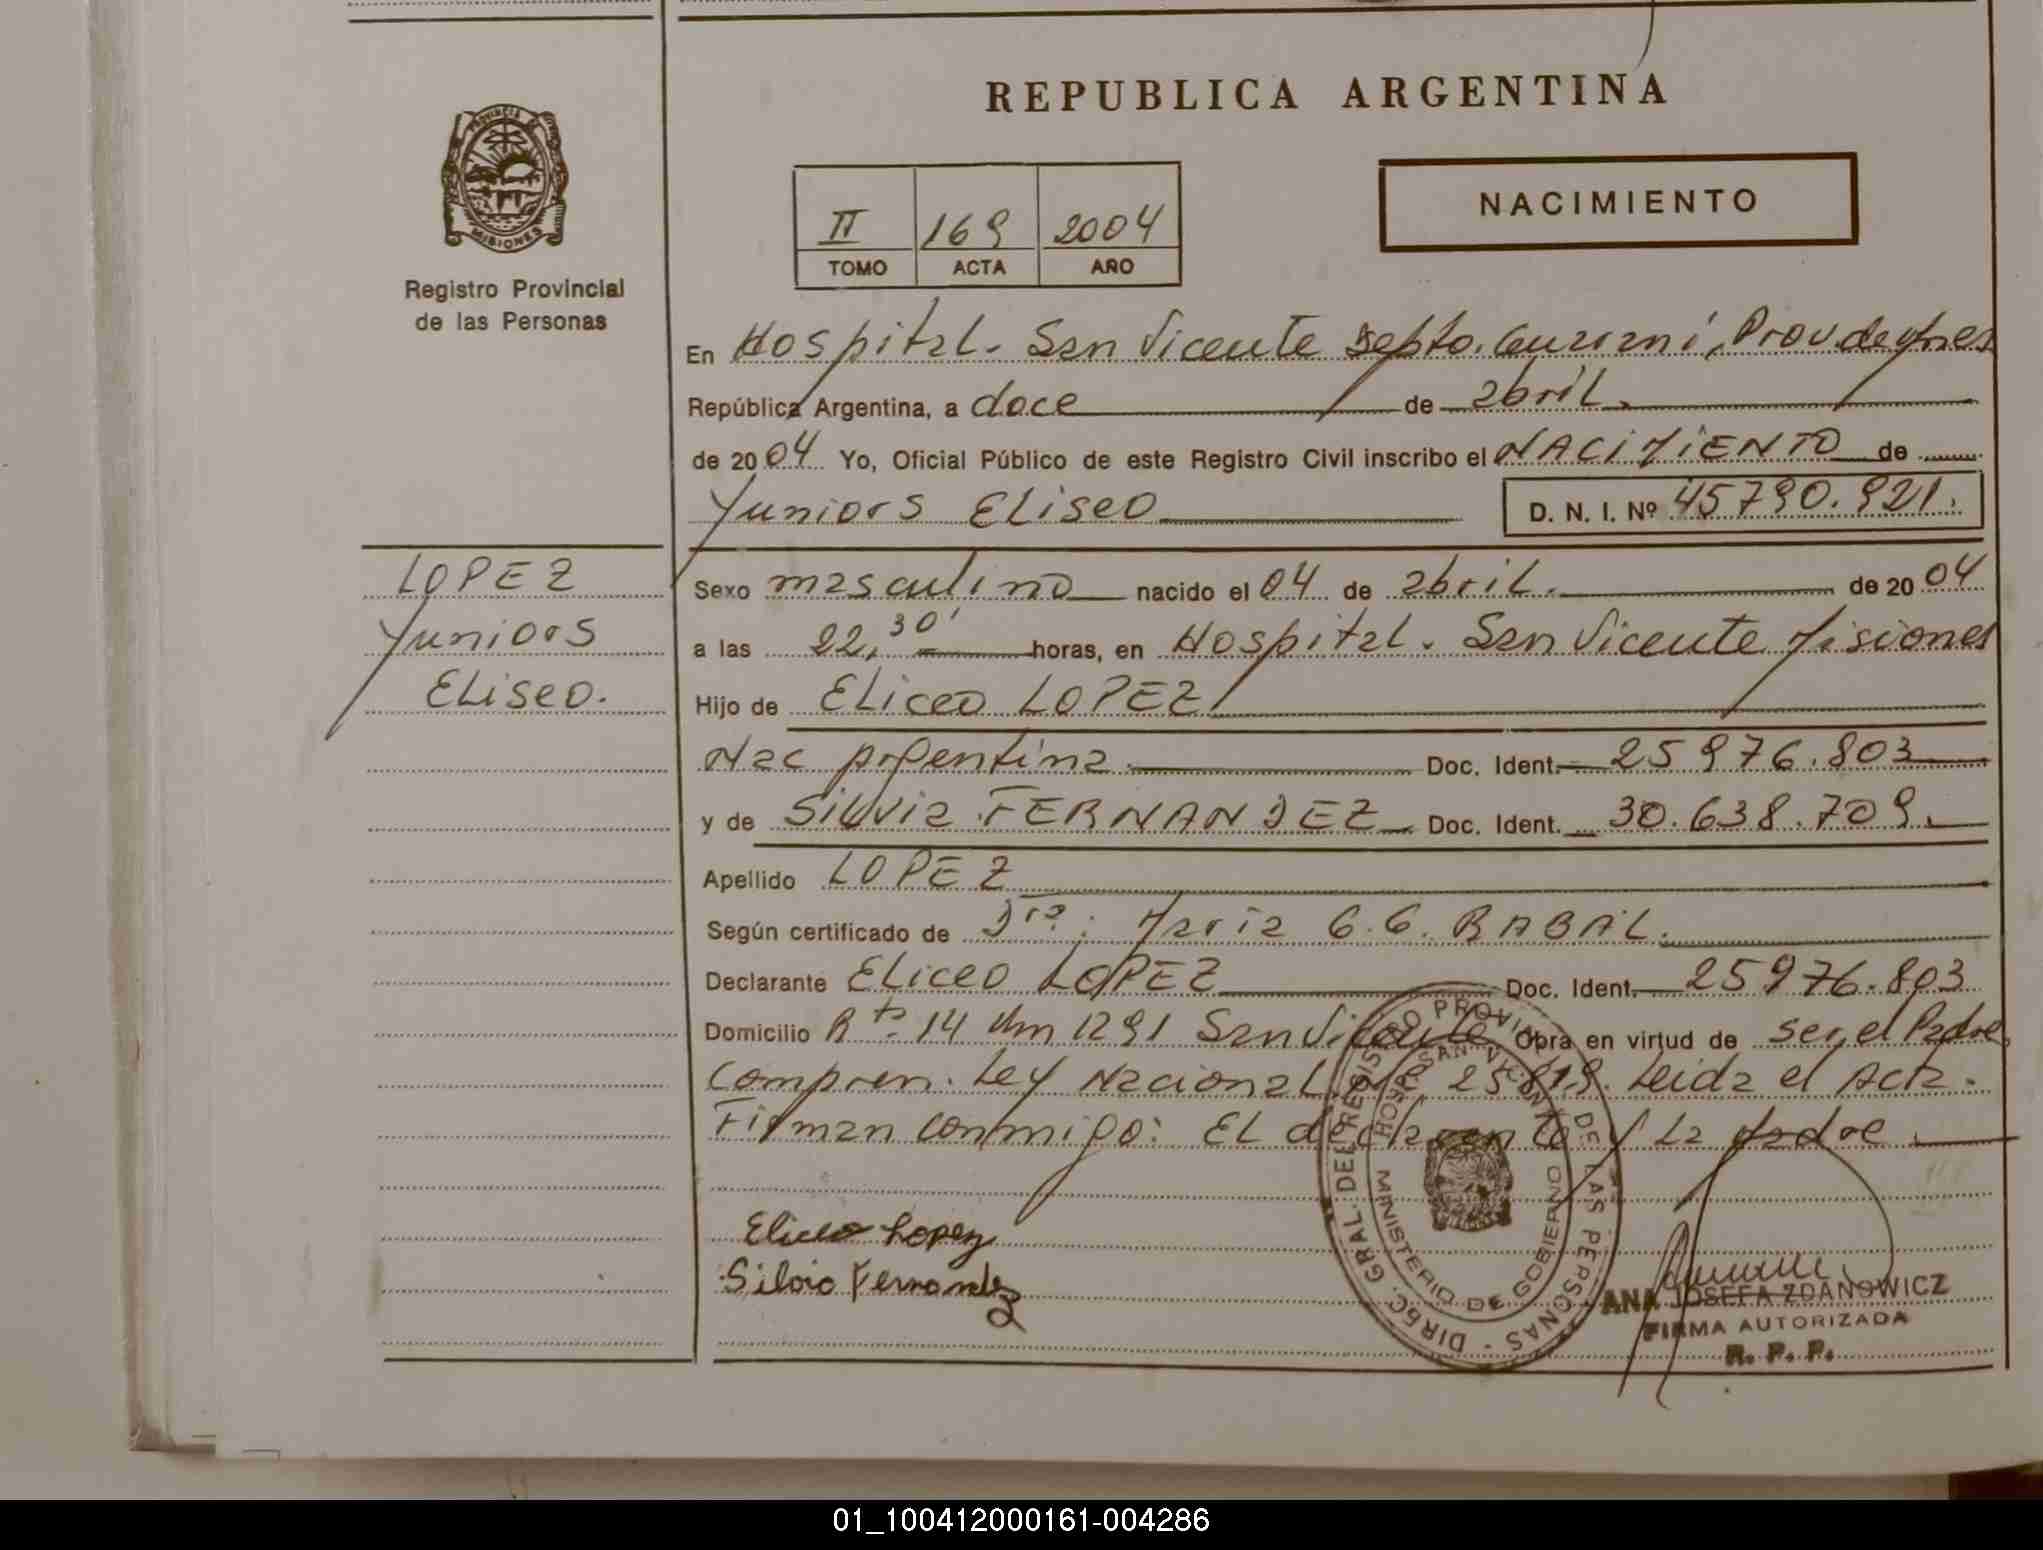 REPUBLICA ARGENTINA
PROVINCIA DE
MISIONES
Registro Provincial
de las Personas
II 169 2004
TOMO ACTA AÑO
NACIMIENTO
En Hospital. San Vicente Depto. Guaraní, Prov. de Mnes
República Argentina, a doce de abril.
de 2004 Yo, Oficial Público de este Registro Civil inscribo el NACIMIENTO de
Yuniors ELiseo D. N. I. Nº 45790.921.
LOPEZ
Yuniors
ELiseo.
Sexo masculino nacido el 04 de abril. de 2004
a las 22,30' horas, en Hospital. San Vicente Misiones
Hijo de ELiceo LOPEZ
Nac Argentina Doc. Ident. 25976.803
y de Silvia FERNANDEZ Doc. Ident. 30.638.709.
Apellido LOPEZ
Según certificado de Dra. María G.G. RABAL.
Declarante ELiceo LOPEZ Doc. Ident. 25976.803
Domicilio Rta. 14 Km 1291 San Vicente Obra en virtud de ser el Padre
Compren. Ley Nacional Nº 25.819. Leida el Acta.
Firman conmigo: EL declarante y La Madre
Eliceo Lopez
Silvia Fernandez
DIREC. GRAL. DEL REGISTRO PROVINCIAL DE LAS PERSONAS
HOSP. SAN VICENTE
MINISTERIO DE GOBIERNO
ANA JOSEFA ZDANOWICZ
FIRMA AUTORIZADA
R. P. P.
01_100412000161-004286